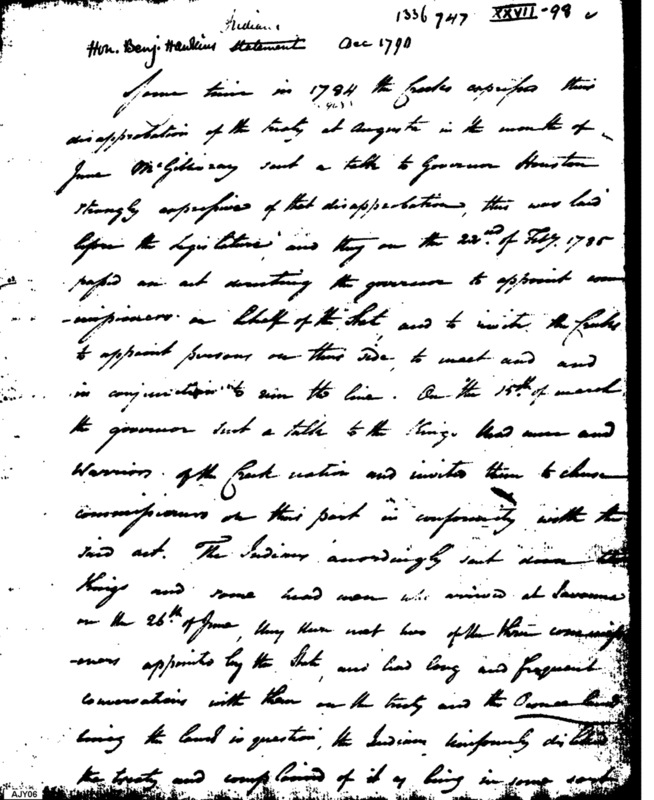 1336 747 XXVII-98
Indians
Hon. Benj. Hawkins Statement Dec 1790
Some time in 1784 the Creeks express their
disapprobation of the treaty at Augusta in the month of
June McGilivray sent a talk to Governor Houston
strongly expressive of that disapprobation, this was laid
before the Legislature and they on the 22nd. of Feby. 1785
passed an act directing the governor to appoint com
-missioners on behalf of the State, and to invite the Creeks
to appoint persons on their side, to meet and and
in conjunction to run the line. On the 15th of march
the governor sent a talk to the Kings Head men and
Warriors of the Creek nation and invites them to chuse
commissioners on their part in conformity with the
said act. The Indians accordingly sent down
Kings and some head men who arrived at Savanna
on the 26th of June, they there met two of the three commissi
-oners appointed by the State, and had long and frequent
conversations with them on the treaty and the Oconee land
being the land in question, the Indians uniformly disliked
the treaty and complained of it as being in some sort
AJY06